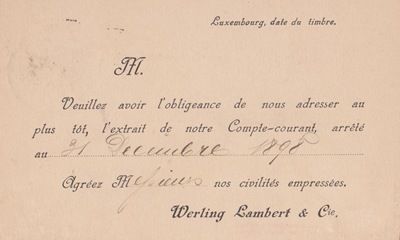 Luxembourg, date du timbre.
M.
Veuillez avoir l'obligeance de nous adresser au
plus tôt, l'extrait de notre Compte-courant, arrêté
au 31 Decembre 1898
Agréez Messieurs nos civilités empressées.
Werling Lambert & Cie.